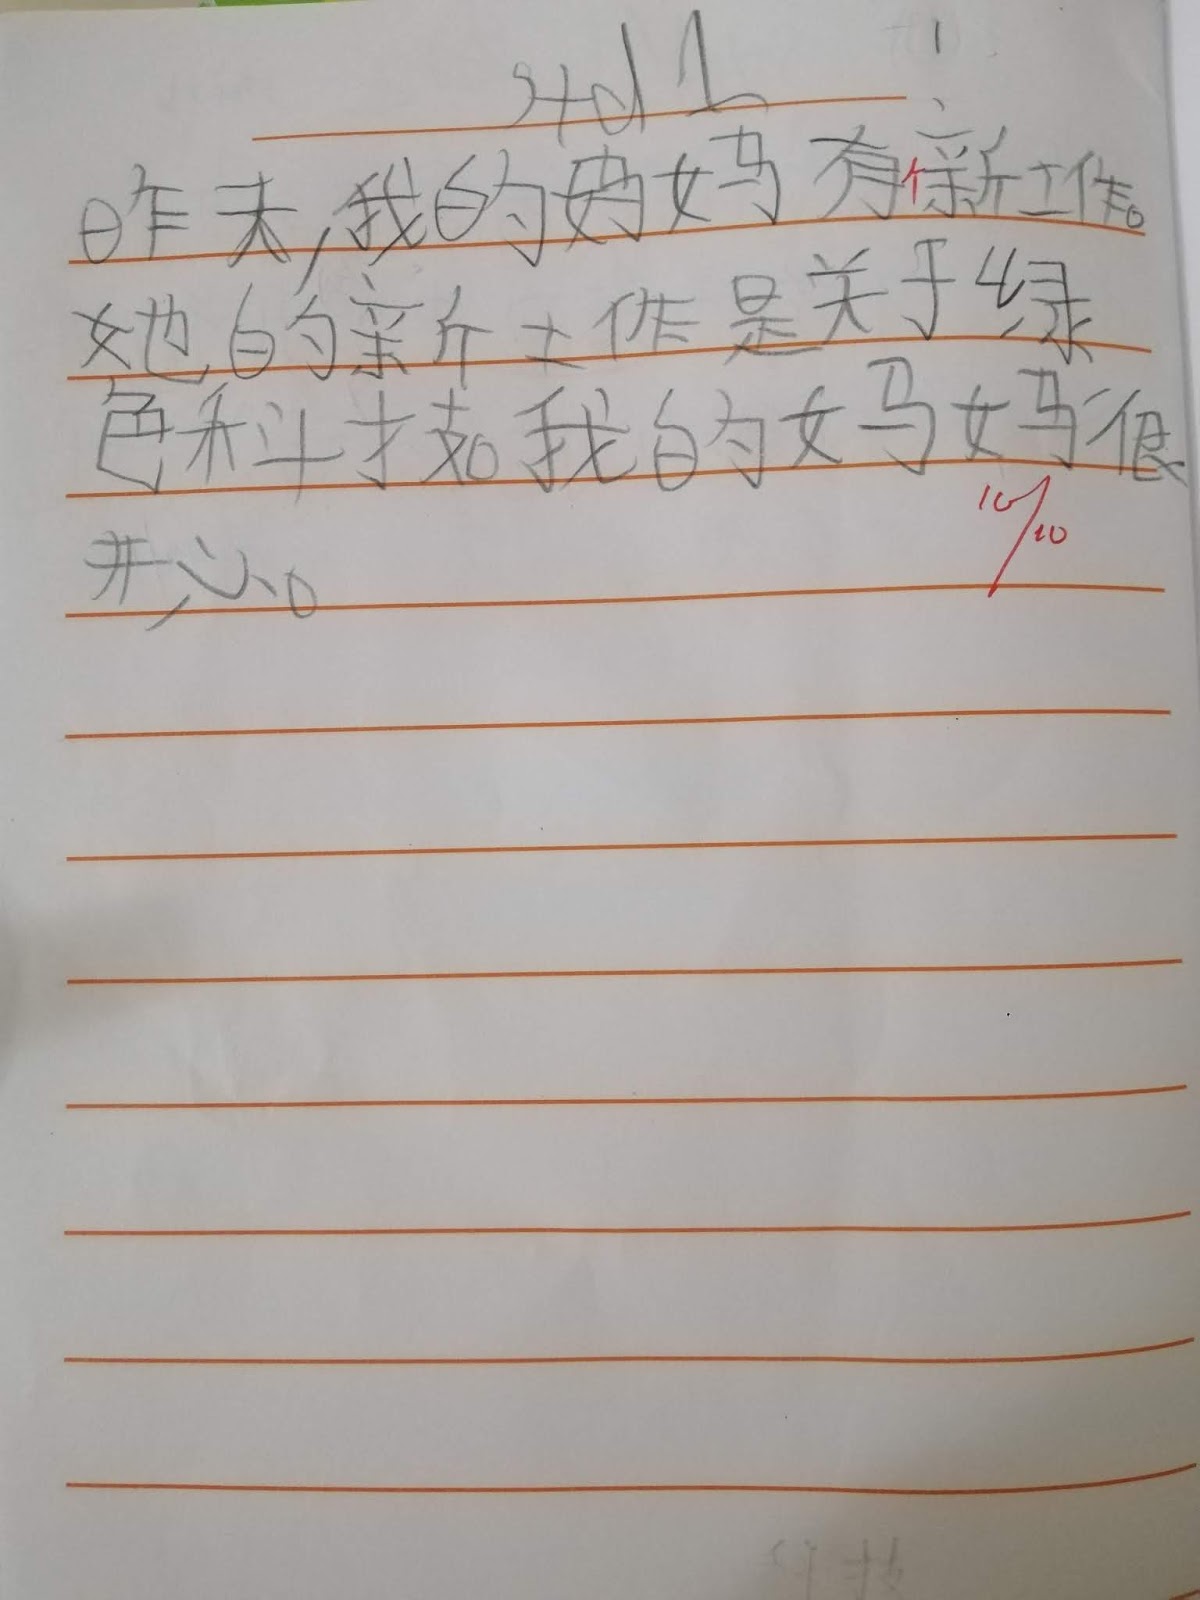 Std 1
昨天,我的妈妈有个新工作。
她的新工作是关于绿
色科技。我的妈妈很
开心。
10/10